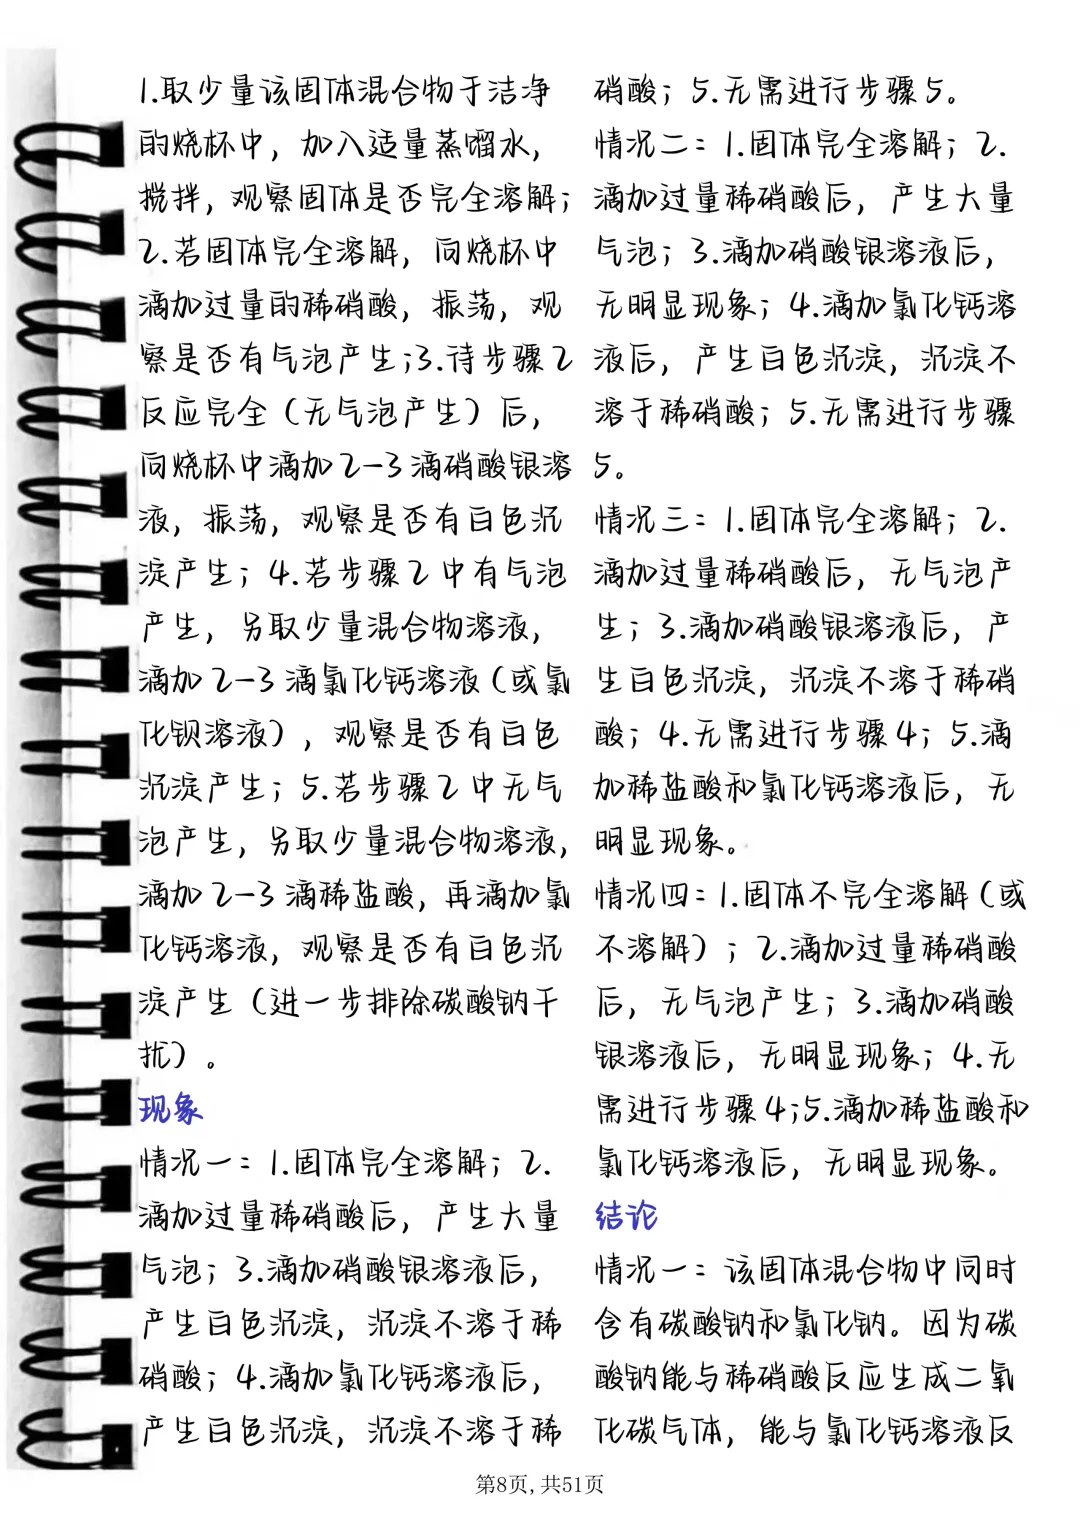 1.取少量该固体混合物于洁净
的烧杯中，加入适量蒸馏水，
搅拌，观察固体是否完全溶解；
2.若固体完全溶解，向烧杯中
滴加过量的稀硝酸，振荡，观
察是否有气泡产生；3.待步骤2
反应完全（无气泡产生）后，
向烧杯中滴加2-3滴硝酸银溶
液，振荡，观察是否有白色沉
淀产生；4.若步骤2中有气泡
产生，另取少量混合物溶液，
滴加2-3滴氯化钙溶液（或氯
化钡溶液），观察是否有白色
沉淀产生；5.若步骤2中无气
泡产生，另取少量混合物溶液，
滴加2-3滴稀盐酸，再滴加氯
化钙溶液，观察是否有白色沉
淀产生（进一步排除碳酸钠干
扰）。
现象
情况一：1.固体完全溶解；2.
滴加过量稀硝酸后，产生大量
气泡；3.滴加硝酸银溶液后，
产生白色沉淀，沉淀不溶于稀
硝酸；4.滴加氯化钙溶液后，
产生白色沉淀，沉淀不溶于稀
硝酸；5.无需进行步骤5。
情况二：1.固体完全溶解；2.
滴加过量稀硝酸后，产生大量
气泡；3.滴加硝酸银溶液后，
无明显现象；4.滴加氯化钙溶
液后，产生白色沉淀，沉淀不
溶于稀硝酸；5.无需进行步骤
5。
情况三：1.固体完全溶解；2.
滴加过量稀硝酸后，无气泡产
生；3.滴加硝酸银溶液后，产
生白色沉淀，沉淀不溶于稀硝
酸；4.无需进行步骤4；5.滴
加稀盐酸和氯化钙溶液后，无
明显现象。
情况四：1.固体不完全溶解（或
不溶解）；2.滴加过量稀硝酸
后，无气泡产生；3.滴加硝酸
银溶液后，无明显现象；4.无
需进行步骤4；5.滴加稀盐酸和
氯化钙溶液后，无明显现象。
结论
情况一：该固体混合物中同时
含有碳酸钠和氯化钠。因为碳
酸钠能与稀硝酸反应生成二氧
化碳气体，能与氯化钙溶液反
第8页,共51页